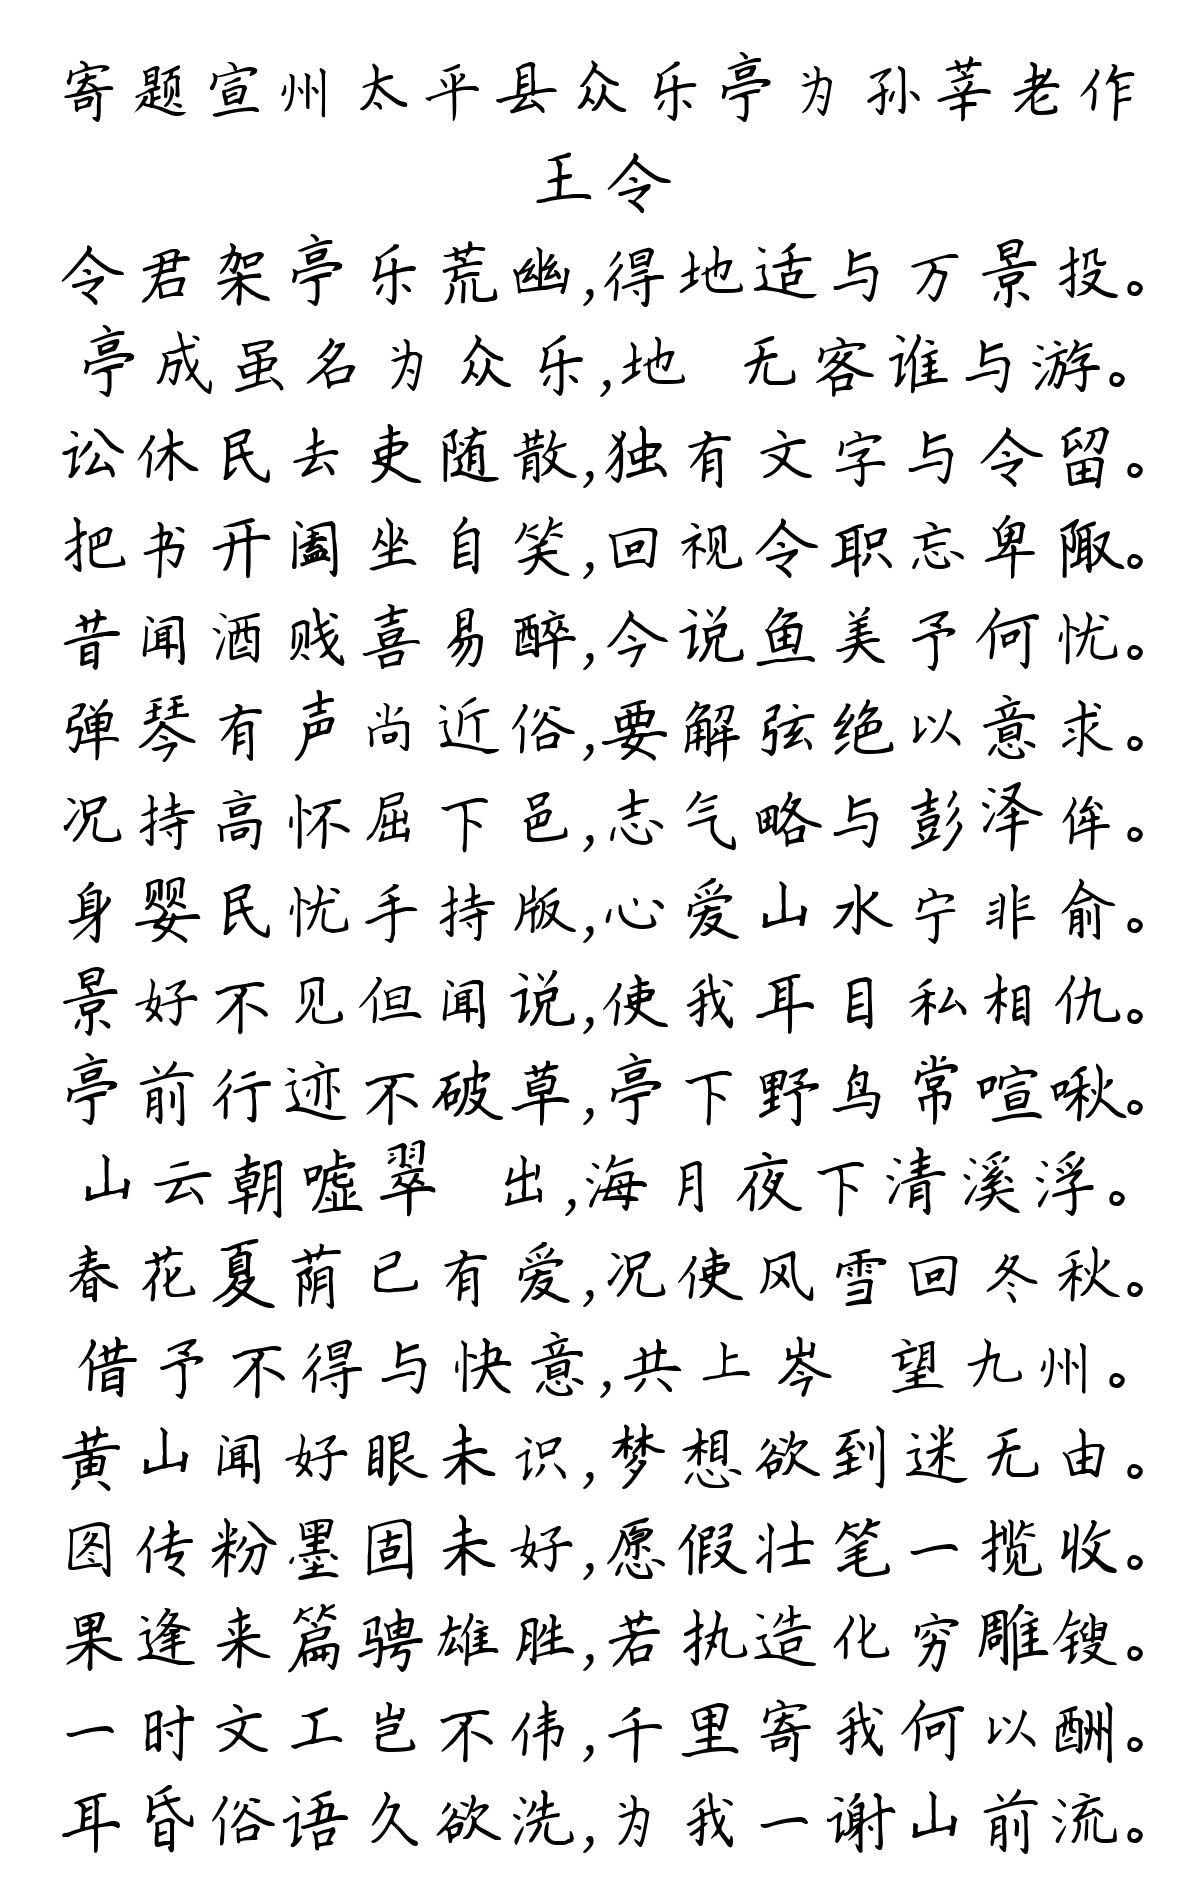 寄题宣州太平县众乐亭为孙莘老作
王令
令君架亭乐荒幽,得地适与万景投。
亭成虽名为众乐,地 无客谁与游。
讼休民去吏随散,独有文字与令留。
把书开阖坐自笑,回视令职忘卑陬。
昔闻酒贱喜易醉,今说鱼美予何忧。
弹琴有声尚近俗,要解弦绝以意求。
况持高怀屈下邑,志气略与彭泽侔。
身婴民忧手持版,心爱山水宁非俞。
景好不见但闻说,使我耳目私相仇。
亭前行迹不破草,亭下野鸟常喧啾。
山云朝嘘翠 出,海月夜下清溪浮。
春花夏荫已有爱,况使风雪回冬秋。
借予不得与快意,共上岑 望九州。
黄山闻好眼未识,梦想欲到迷无由。
图传粉墨固未好,愿假壮笔一揽收。
果逢来篇骋雄胜,若执造化穷雕锼。
一时文工岂不伟,千里寄我何以酬。
耳昏俗语久欲洗,为我一谢山前流。